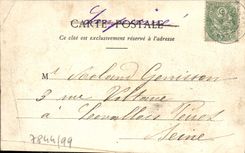 Imprimé
CARTE POSTALE
Ce côté est exclusivement réservé à l'adresse
5
M
3 rue Voltaire
à Levallois Perret
Seine
7844/99